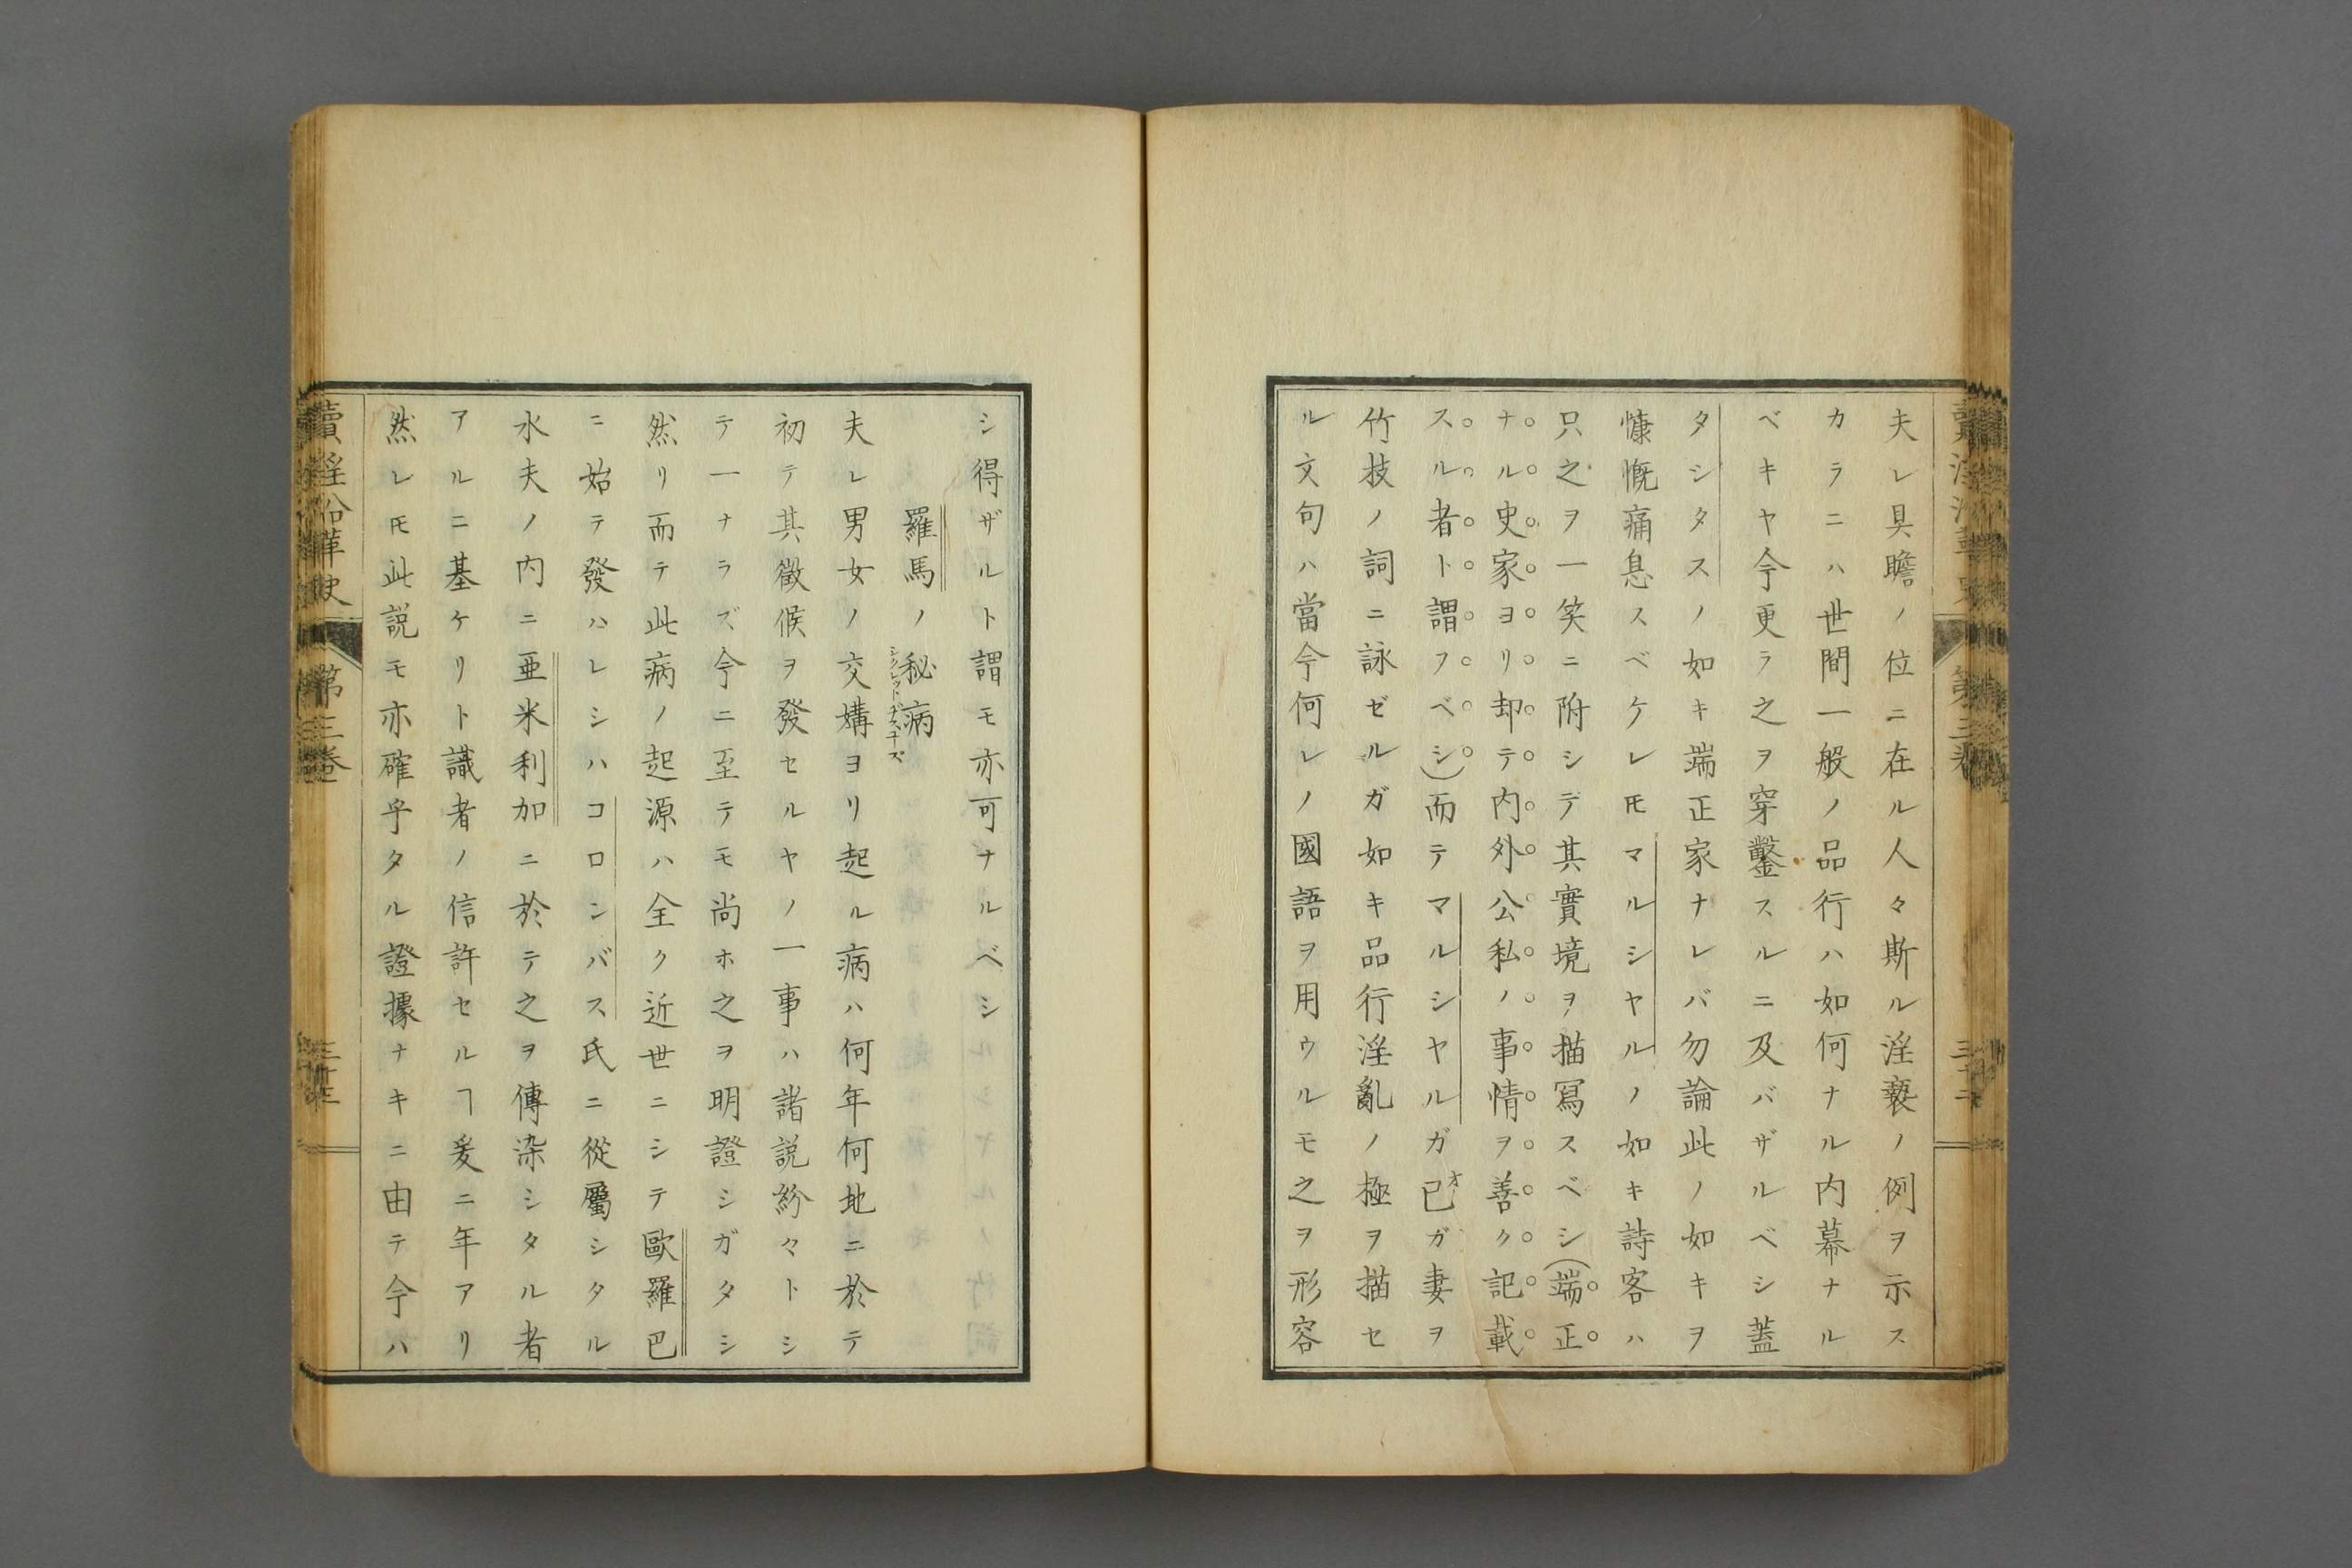 夫レ具瞻ノ位ニ在ル人々斯ル淫褻ノ例ヲ示ス
カラニハ世間一般ノ品行ハ如何ナル内幕ナル
ベキヤ今更ラ之ヲ穿鑿スルニ及バザルベシ蓋
タシタスノ如キ端正家ナレバ勿論此ノ如キヲ
慷慨痛息スベケレ𪜈マルシヤルノ如キ詩客ハ
只之ヲ一笑ニ附シテ其實境ヲ描寫スベシ(端正
ナル史家ヨリ却テ内外公私ノ事情ヲ善ク記載
スル者ト謂フベシ)而テマルシヤルガ己オガ妻ヲ
竹枝ノ詞ニ詠ゼルガ如キ品行淫亂ノ極ヲ描セ
ル文句ハ當今何レノ國語ヲ用ウルモ之ヲ形容
シ得ザルト謂モ亦可ナルベシ
羅馬ノ秘病
夫レ男女ノ交媾ヨリ起ル病ハ何年何地ニ於テ
初テ其徴候ヲ發セルヤノ一事ハ諸説紛々トシ
テ一ナラズ今ニ至テモ尚ホ之ヲ明證シガタシ
然リ而テ此病ノ起源ハ全ク近世ニシテ歐羅巴
ニ始テ發ハレシハコロンバス氏ニ從屬シタル
水夫ノ内ニ亜米利加ニ於テ之ヲ傳染シタル者
アルニ基ケリト識者ノ信許セルヿ爰ニ年アリ
然レ𪜈此説モ亦確乎タル證據ナキニ由テ今ハ
賣淫沿革史
第三卷